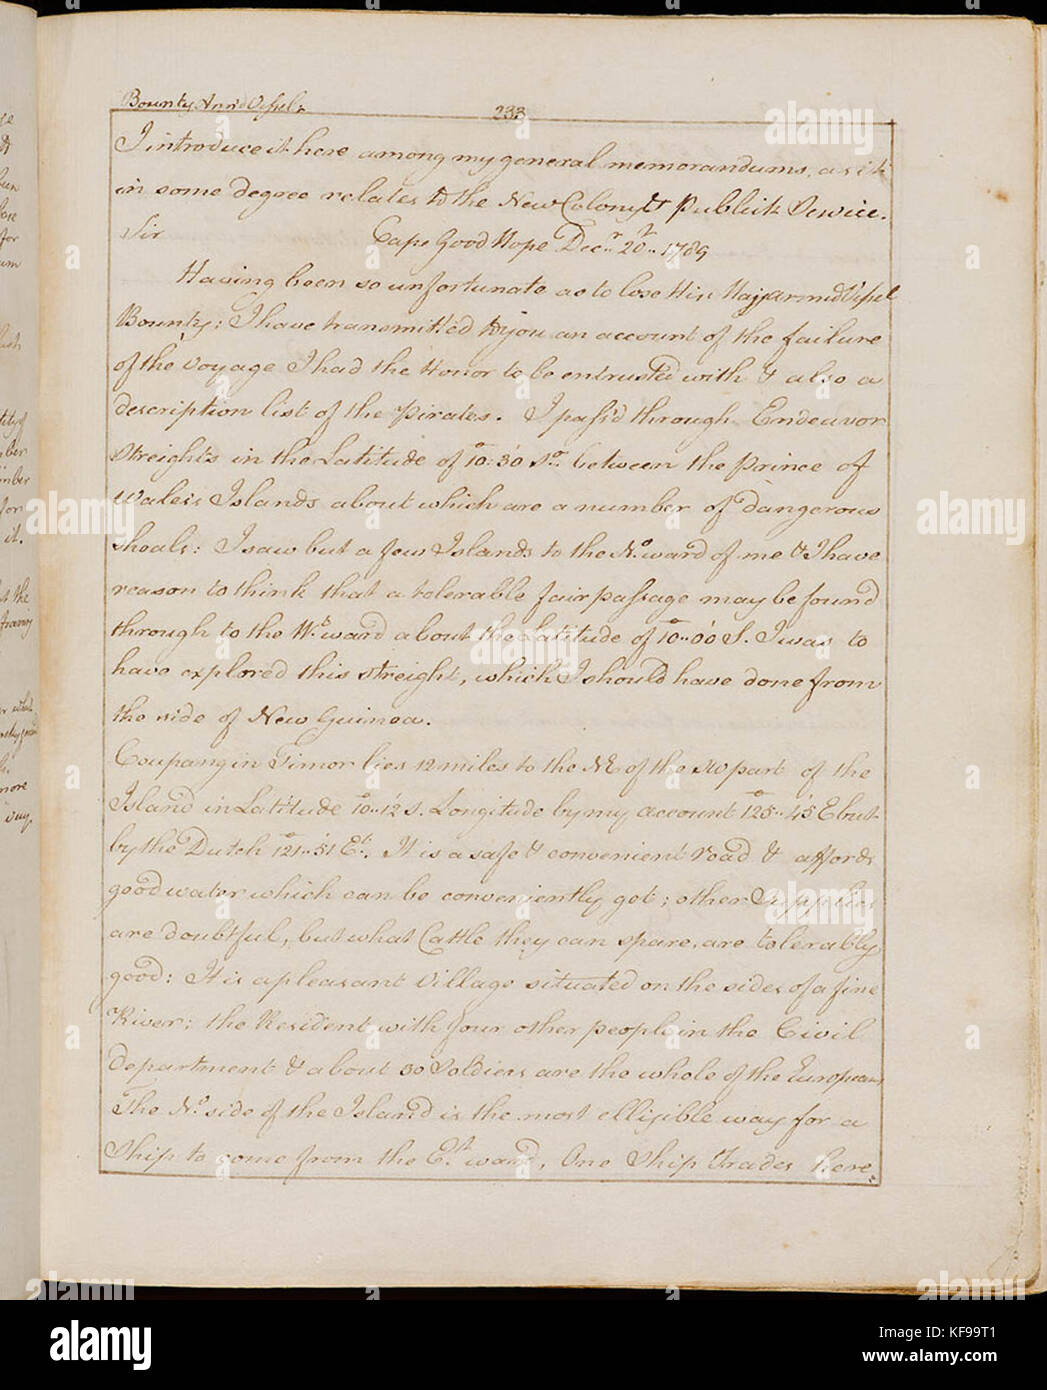 Bounty Arm'd Vessel.
233
I introduce it here among my general memorandums, as it
in some degree relates to the New Colony & Publick Service.
Sir Cape Good Hope Decr. 20th.. 1789
Having been so unfortunate as to lose His Majy armd Vessel
Bounty; I have transmitted to you an account of the failure
of the Voyage I had the Honor to be entrusted with & also a
description list of the Pirates. I pass'd through Endeavor
Streights in the Latitude of 10°:30' So. between the Prince of
Wales's Islands about which are a number of dangerous
Shoals: I saw but a few Islands to the No.ward of me & I have
reason to think that a tolerable fair passage may be found
through to the Wt.ward about the Latitude of 10°..00' S. I was to
have explored this Streight, which I should have done from
the side of New Guinea.
Coupang in Timor lies 12 miles to the NE of the SW part of the
Island in Latitude 10°..12' S. Longitude by my account 125°..45' E but
by the Dutch 121°..51' Et. It is a safe & convenient road & affords
good water which can be conveniently got; other Supplies
are doubtful, but what Cattle they can spare, are tolerably
good: It is a pleasant Village situated on the sides of a fine
River; the Resident with four other people in the Civil
department & about 30 Soldiers are the whole of the Europeans
The No. side of the Island is the most elligible way for a
Ship to come from the Et.ward, One Ship Trades here.
alamy
Image ID: KF99T1
www.alamy.com